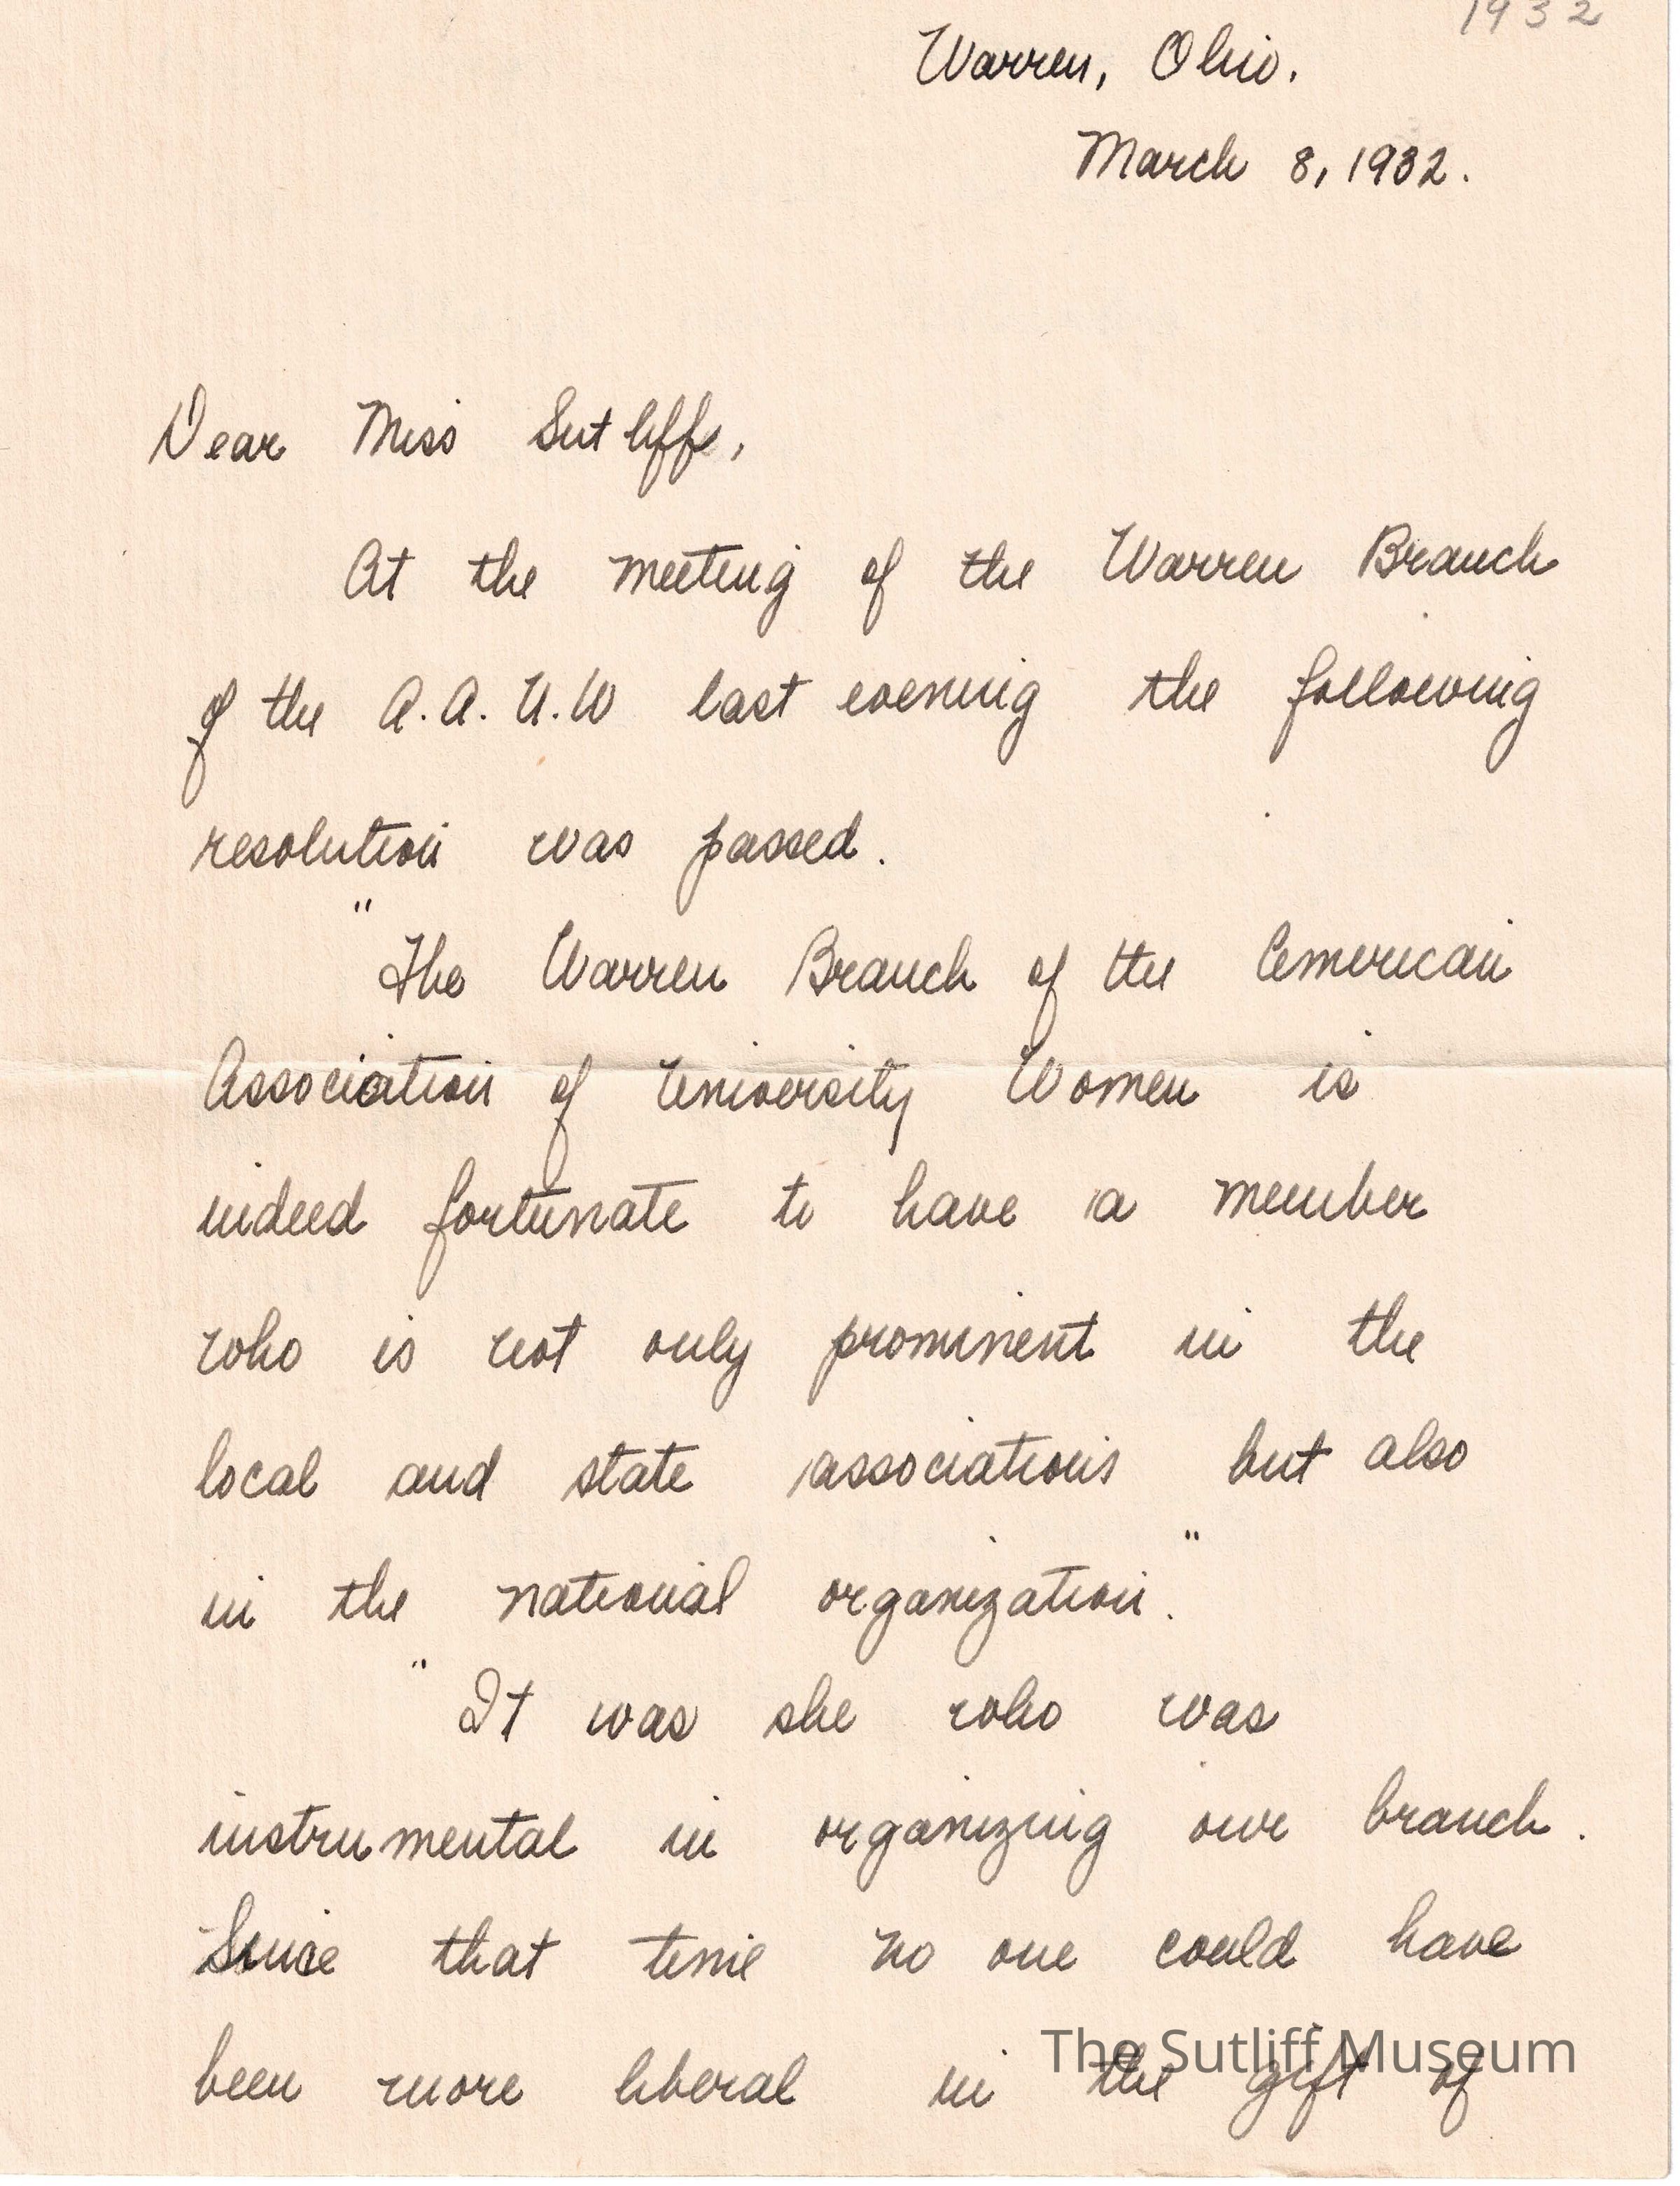 1932
Warren, Ohio.
March 8, 1932.
Dear Miss Sutliff,
At the meeting of the Warren Branch
of the A.A.U.W last evening the following
resolution was passed.
"The Warren Branch of the American
Association of University Women is
indeed fortunate to have a member
who is not only prominent in the
local and state associations but also
in the national organization."
"It was she who was
instrumental in organizing our branch.
Since that time no one could have
been more liberal in the gift of
The Sutliff Museum